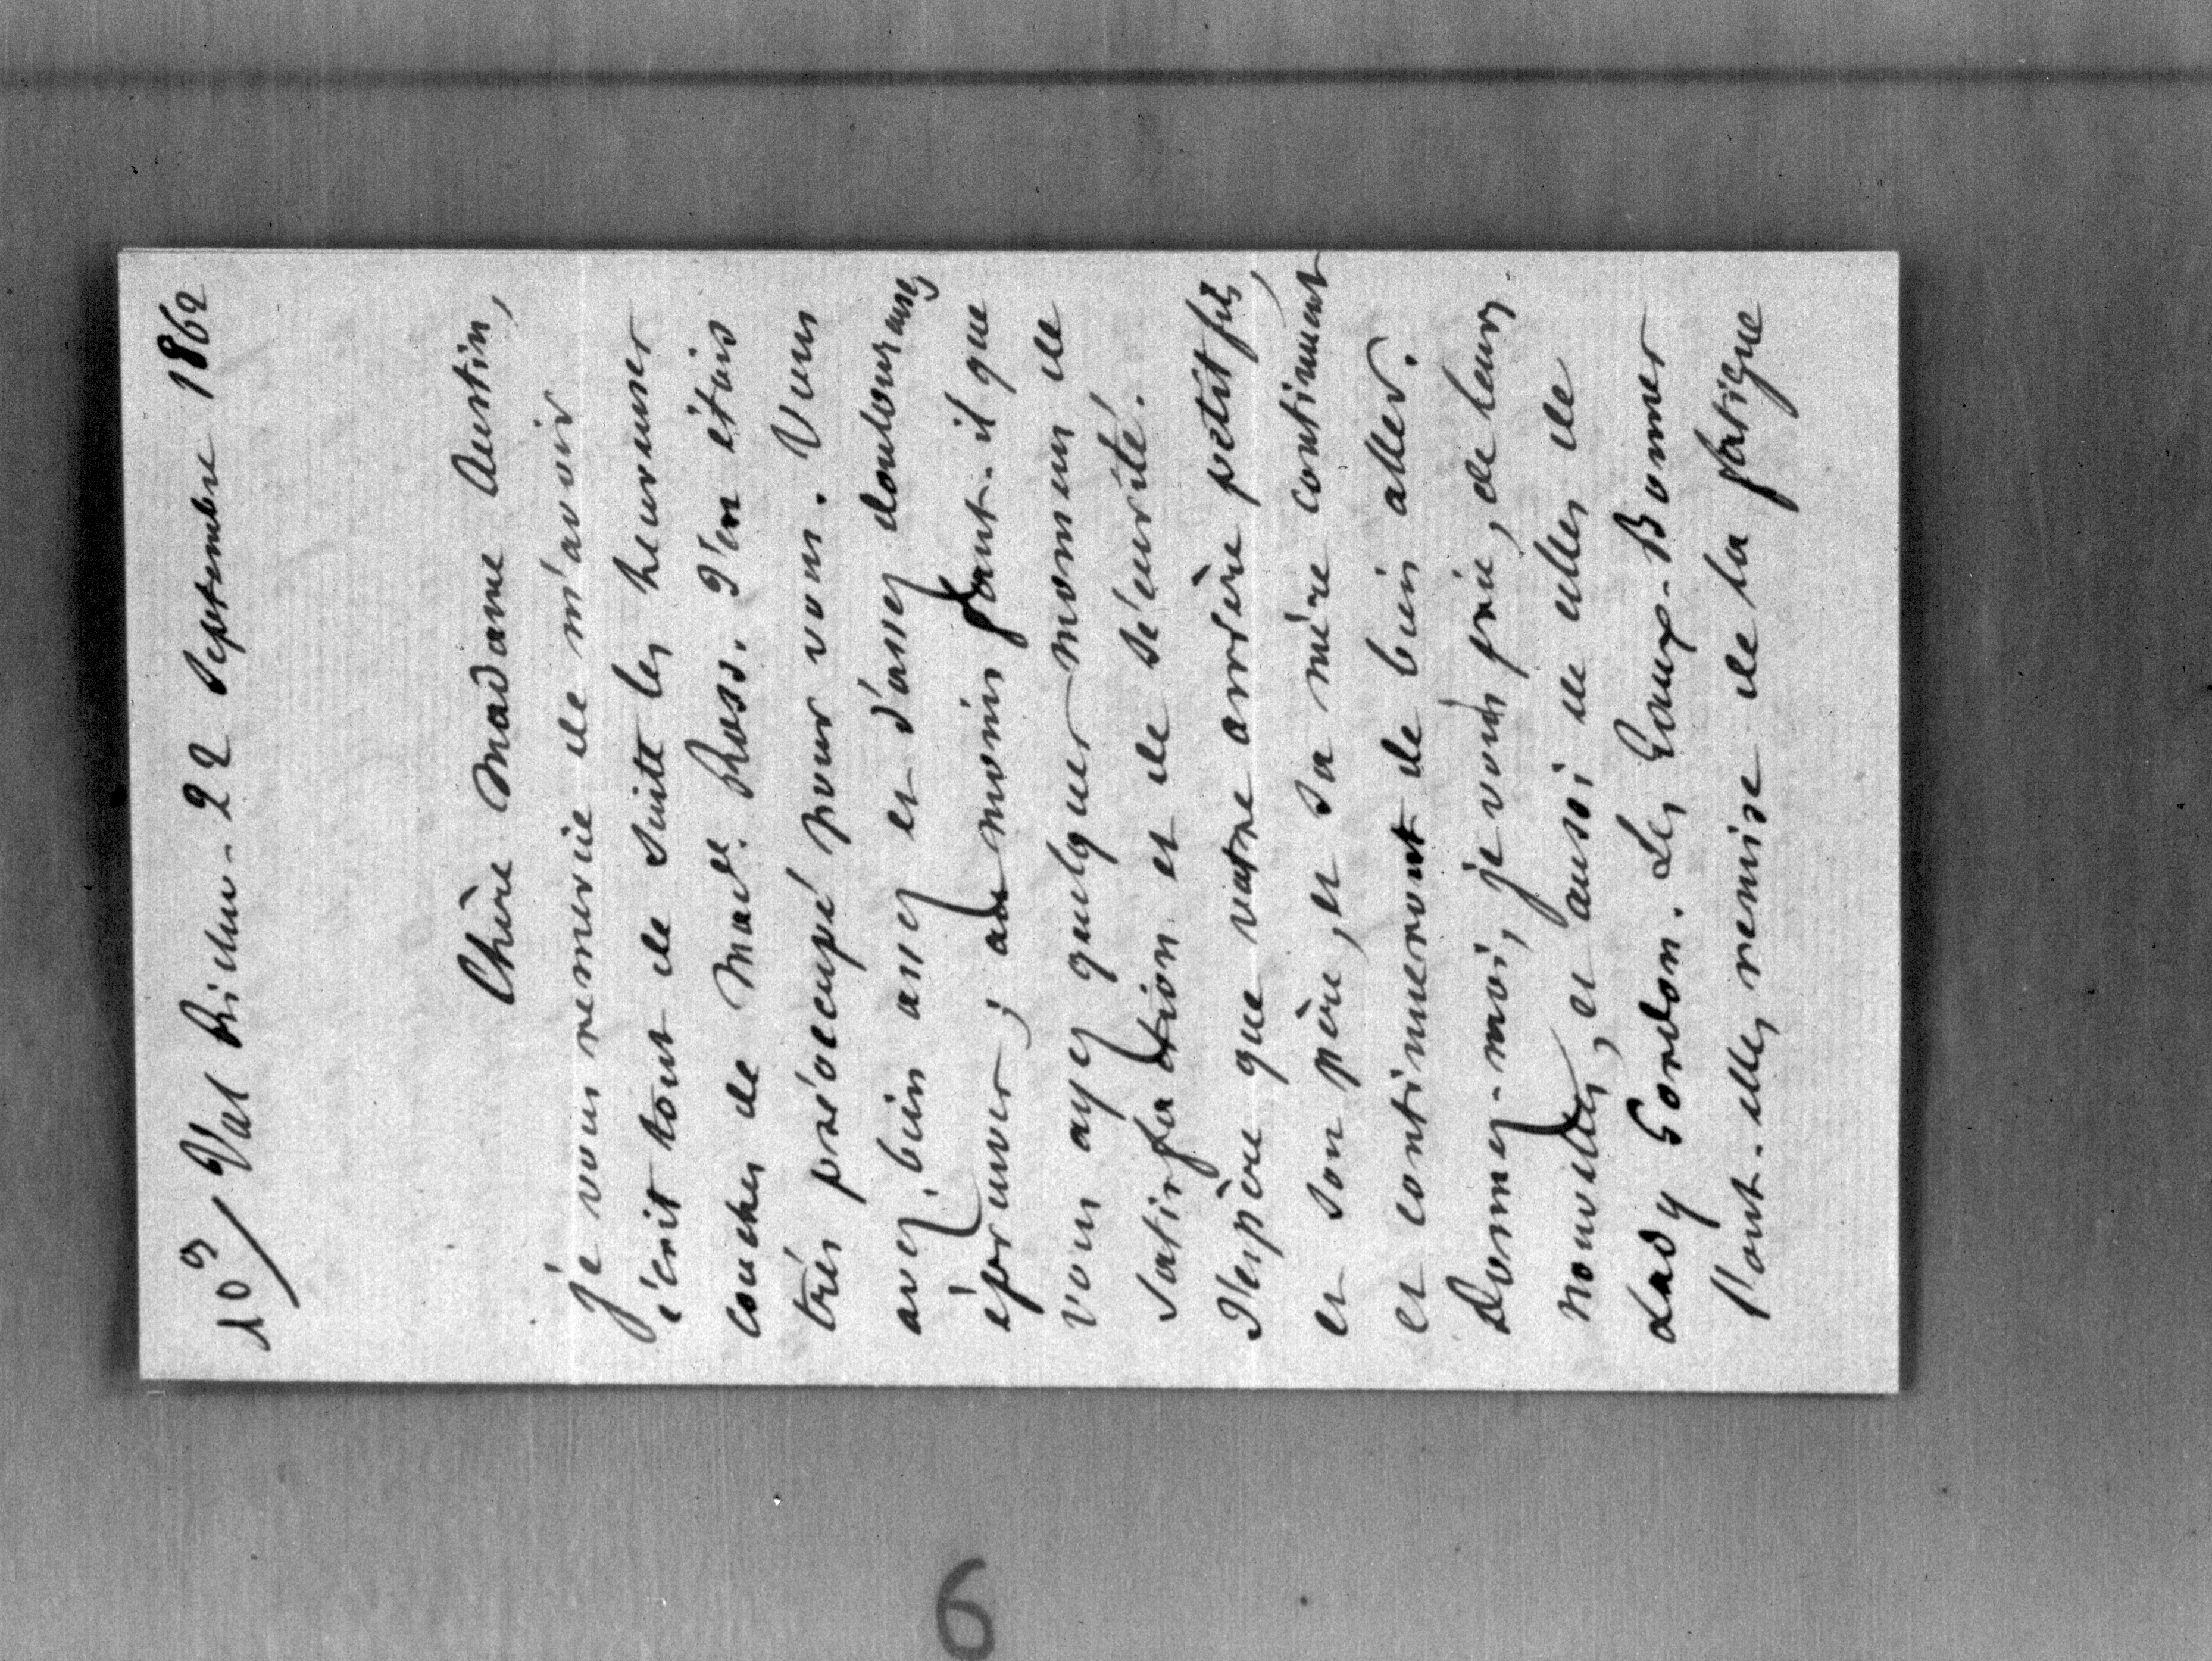 109/ Val Richer - 22 Septembre 1862
Chère Madame Austin,
je vous remercie de m'avoir
écrit tout de suite les heureuses
couches de Made. Ross. J'en étais
très préoccupé pour vous. Vous
avez bien assez et d'assez douloureuses
épreuves ; au moins faut-il que
vous ayez quelques momens de
satisfaction et de sécurité.
J'espère que votre arrière petit fils,
et son père, et sa mère continuent
et continueront de bien aller.
Donnez-moi, je vous prie, de leurs
nouvelles, et aussi de celles de
Lady Gordon. Les Eaux-Bonnes
l'ont-elles remise de la fatigue
6